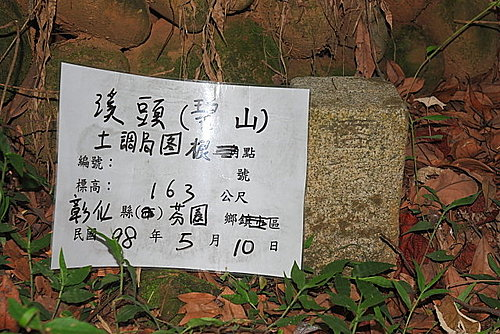 溪頭(琴山)
土調局図根點
編號: 號
標高: 163 公尺
彰化縣(市)芬園鄉鎮市區
民國 98 年 5 月 10 日